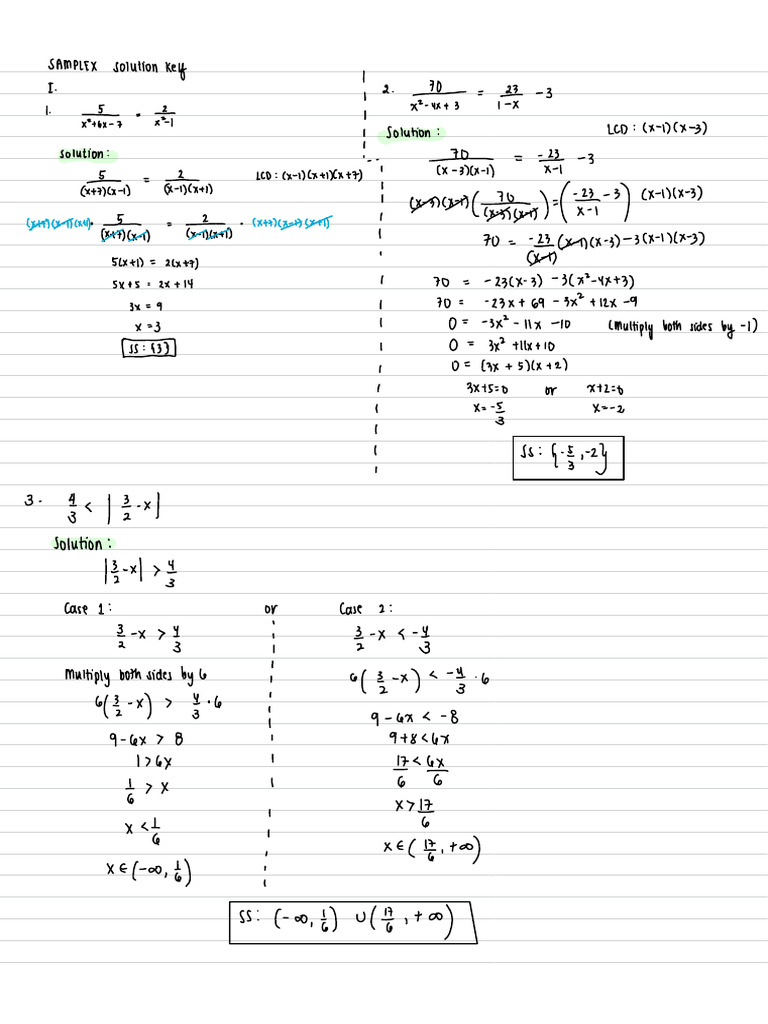 SAMPLEX Solution Key
I.
1. 5/(x²+6x-7) = 2/(x²-1)
Solution:
5/((x+7)(x-1)) = 2/((x-1)(x+1)) LCD: (x-1)(x+1)(x+7)
(x+7)(x-1)(x+1) · 5/((x+7)(x-1)) = 2/((x-1)(x+1)) · (x+7)(x-1)(x+1)
5(x+1) = 2(x+7)
5x+5 = 2x+14
3x = 9
x = 3
SS: {3}
2. 70/(x²-4x+3) = 23/(1-x) -3
Solution: LCD: (x-1)(x-3)
70/((x-3)(x-1)) = -23/(x-1) -3
(x-3)(x-1)(70/((x-3)(x-1))) = (-23/(x-1) -3) (x-1)(x-3)
70 = -23/(x-1) (x-1)(x-3) -3(x-1)(x-3)
70 = -23(x-3) -3(x²-4x+3)
70 = -23x + 69 -3x² +12x -9
0 = -3x² -11x -10 (Multiply both sides by -1)
0 = 3x² +11x+10
0 = (3x + 5)(x+2)
3x+5=0 or x+2=0
x = -5/3 x=-2
SS: {-5/3, -2}
3. 4/3 < |3/2 -x|
Solution:
|3/2 -x| > 4/3
Case 1: or Case 2:
3/2 -x > 4/3
Multiply both sides by 6
6(3/2 -x) > 4/3 · 6
9-6x > 8
1 > 6x
1/6 > x
x < 1/6
x ∈ (-∞, 1/6)
3/2 -x < -4/3
6(3/2 -x) < -4/3 · 6
9-6x < -8
9+8 < 6x
17/6 < 6x/6
x > 17/6
x ∈ (17/6, +∞)
SS: (-∞, 1/6) ∪ (17/6, +∞)